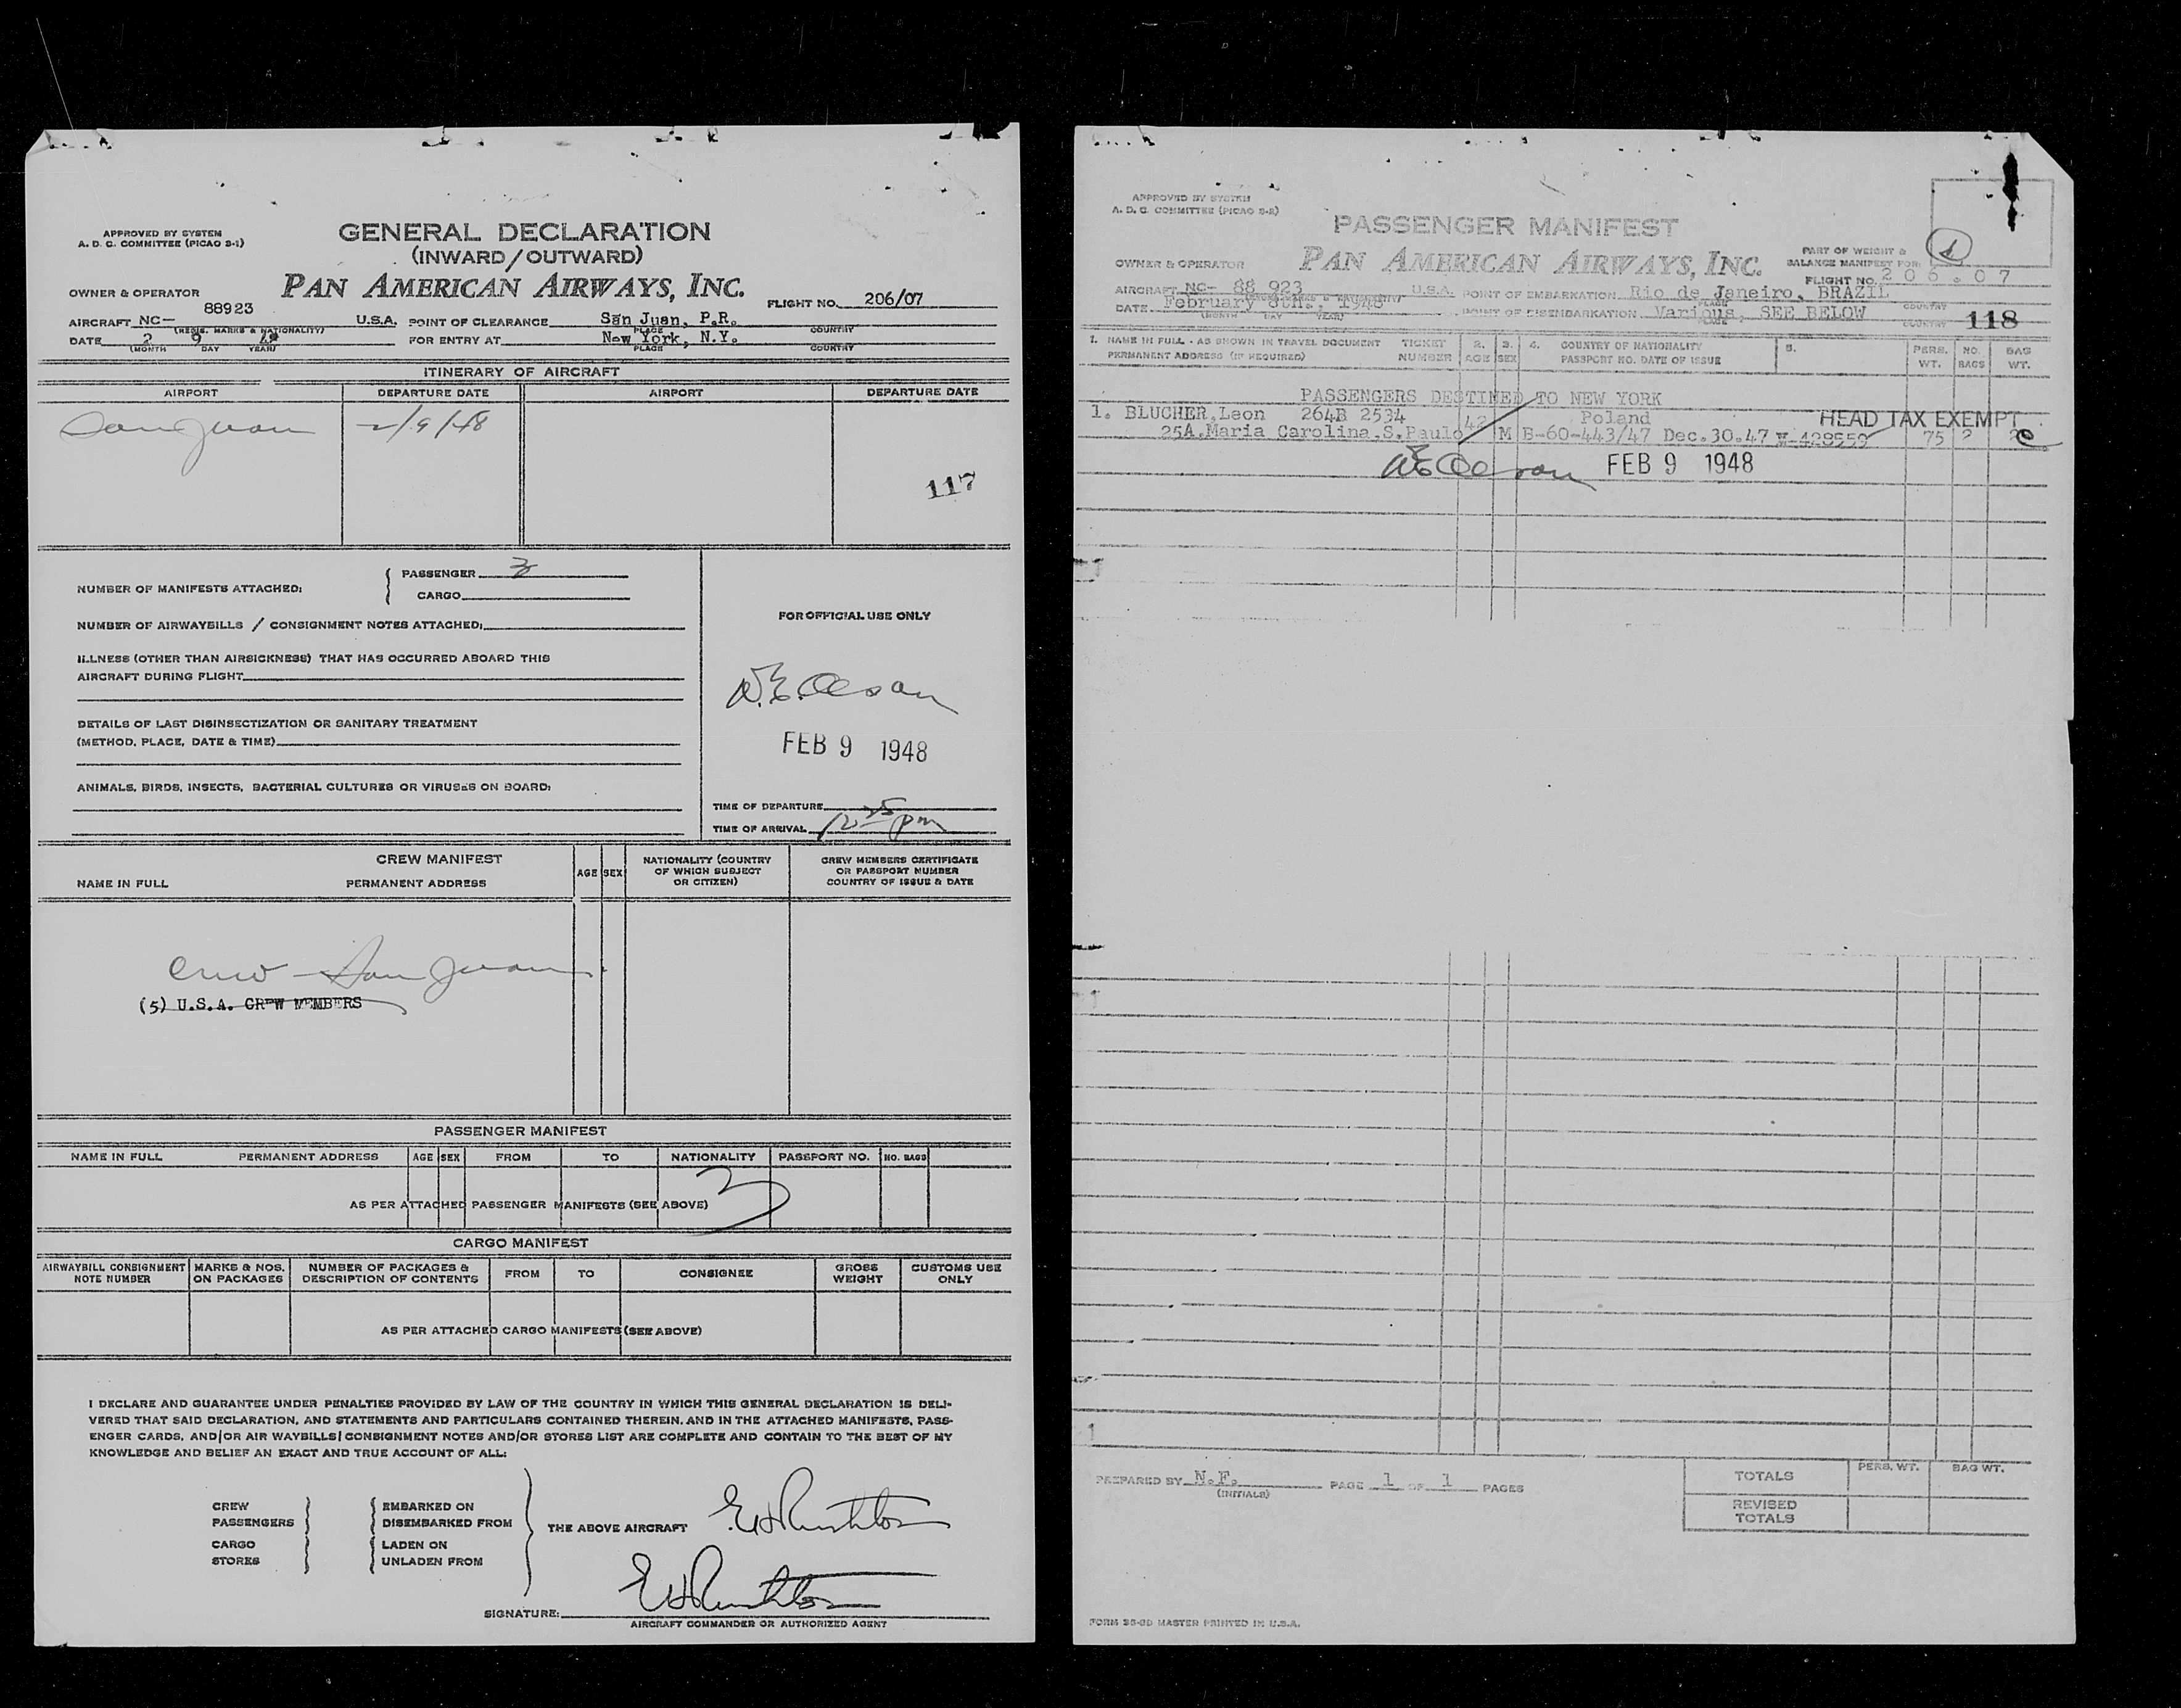 APPROVED BY SYSTEM
A. D. C. COMMITTEE (PICAO 3-1)
GENERAL DECLARATION
(INWARD/OUTWARD)
PAN AMERICAN AIRWAYS, INC.
OWNER & OPERATOR
FLIGHT NO. 206/07
88923
AIRCRAFT NC-
(REGIS. MARKS & NATIONALITY)
U.S.A. POINT OF CLEARANCE San Juan, P.R.
PLACE COUNTRY
DATE 2 9
(MONTH DAY YEAR)
FOR ENTRY AT New York, N.Y.
PLACE COUNTRY
ITINERARY OF AIRCRAFT
AIRPORT DEPARTURE DATE AIRPORT DEPARTURE DATE
San Juan 2/9/48
117
NUMBER OF MANIFESTS ATTACHED: PASSENGER 3
CARGO
NUMBER OF AIRWAYBILLS / CONSIGNMENT NOTES ATTACHED:
ILLNESS (OTHER THAN AIRSICKNESS) THAT HAS OCCURRED ABOARD THIS
AIRCRAFT DURING FLIGHT
DETAILS OF LAST DISINSECTIZATION OR SANITARY TREATMENT
(METHOD, PLACE, DATE & TIME)
ANIMALS, BIRDS, INSECTS, BACTERIAL CULTURES OR VIRUSES ON BOARD:
FOR OFFICIAL USE ONLY
FEB 9 1948
TIME OF DEPARTURE
TIME OF ARRIVAL 12 25 pm
CREW MANIFEST
NAME IN FULL PERMANENT ADDRESS
AGE SEX
NATIONALITY (COUNTRY
OF WHICH SUBJECT
OR CITIZEN)
CREW MEMBERS CERTIFICATE
OR PASSPORT NUMBER
COUNTRY OF ISSUE & DATE
Crew - San Juan
(5) U.S.A. CREW MEMBERS
PASSENGER MANIFEST
NAME IN FULL PERMANENT ADDRESS AGE SEX FROM TO NATIONALITY PASSPORT NO. NO. BAGS
3
AS PER ATTACHED PASSENGER MANIFESTS (SEE ABOVE)
CARGO MANIFEST
AIRWAYBILL CONSIGNMENT
NOTE NUMBER
MARKS & NOS.
ON PACKAGES
NUMBER OF PACKAGES &
DESCRIPTION OF CONTENTS
FROM TO CONSIGNEE
GROSS
WEIGHT
CUSTOMS USE
ONLY
AS PER ATTACHED CARGO MANIFESTS (SEE ABOVE)
I DECLARE AND GUARANTEE UNDER PENALTIES PROVIDED BY LAW OF THE COUNTRY IN WHICH THIS GENERAL DECLARATION IS DELI-
VERED THAT SAID DECLARATION, AND STATEMENTS AND PARTICULARS CONTAINED THEREIN, AND IN THE ATTACHED MANIFESTS, PASS-
ENGER CARDS, AND/OR AIR WAYBILLS/CONSIGNMENT NOTES AND/OR STORES LIST ARE COMPLETE AND CONTAIN TO THE BEST OF MY
KNOWLEDGE AND BELIEF AN EXACT AND TRUE ACCOUNT OF ALL:
CREW
PASSENGERS
CARGO
STORES
EMBARKED ON
DISEMBARKED FROM
LADEN ON
UNLADEN FROM
THE ABOVE AIRCRAFT
SIGNATURE:
AIRCRAFT COMMANDER OR AUTHORIZED AGENT
APPROVED BY SYSTEM
A. D. C. COMMITTEE (PICAO 3-2)
PASSENGER MANIFEST
PAN AMERICAN AIRWAYS, INC.
OWNER & OPERATOR
PART OF WEIGHT &
BALANCE MANIFEST FOR:
FLIGHT NO. 206.07
AIRCRAFT NC- 88 923
U.S.A. POINT OF EMBARKATION Rio de Janeiro, BRAZIL
PLACE COUNTRY
DATE February 8th, 1948
(MONTH DAY YEAR)
POINT OF DISEMBARKATION Various, SEE BELOW
PLACE COUNTRY
118
1. NAME IN FULL - AS SHOWN IN TRAVEL DOCUMENT
PERMANENT ADDRESS (IF REQUIRED)
TICKET
NUMBER
2. AGE
3. SEX
4. COUNTRY OF NATIONALITY
PASSPORT NO. DATE OF ISSUE
5.
PERS. WT.
NO. BAGS
BAG WT.
PASSENGERS DESTINED TO NEW YORK
1. BLUCHER,Leon 264B 2534 42 Poland HEAD TAX EXEMPT
25A.Maria Carolina.S.Paulo M B-60-443/47 Dec.30.47 75 2
FEB 9 1948
PREPARED BY N.F.
(INITIALS)
PAGE 1 OF 1 PAGES
TOTALS PERS. WT. BAG WT.
REVISED
TOTALS
FORM 36-0D MASTER PRINTED IN U.S.A.